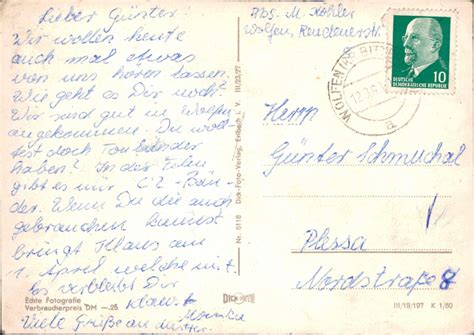 Lieber Günter!
Wir wollen heute
auch mal etwas
von uns hören lassen.
Wie geht es Dir noch?
Wir sind gut in Wolfen
angekommen. Du woll
test doch Tonbänder
haben? In der Filen
gibt es nur C2-Bän-
der. Wenn Du die auch
gebrauchen kannst
bringt Klaus am
1. April welche mit.
Es verbleibt Dir
Klaus +
Monika
Viele Grüße an
Echte Fotografie
Verbraucherpreis DM —.25
Nr. 6118 Dick-Foto-Verlag, Erlbach i. V. III/23/27
DICK
Abs. M. Köhler
Wolfen,
WOLFEN (KR BITT
12.3.6
a
DEUTSCHE
DEMOKRATISCHE REPUBLIK
10
Herrn
Günter Schmuchal
Plessa
Nordstraße 8
III/18/197 K 1/60